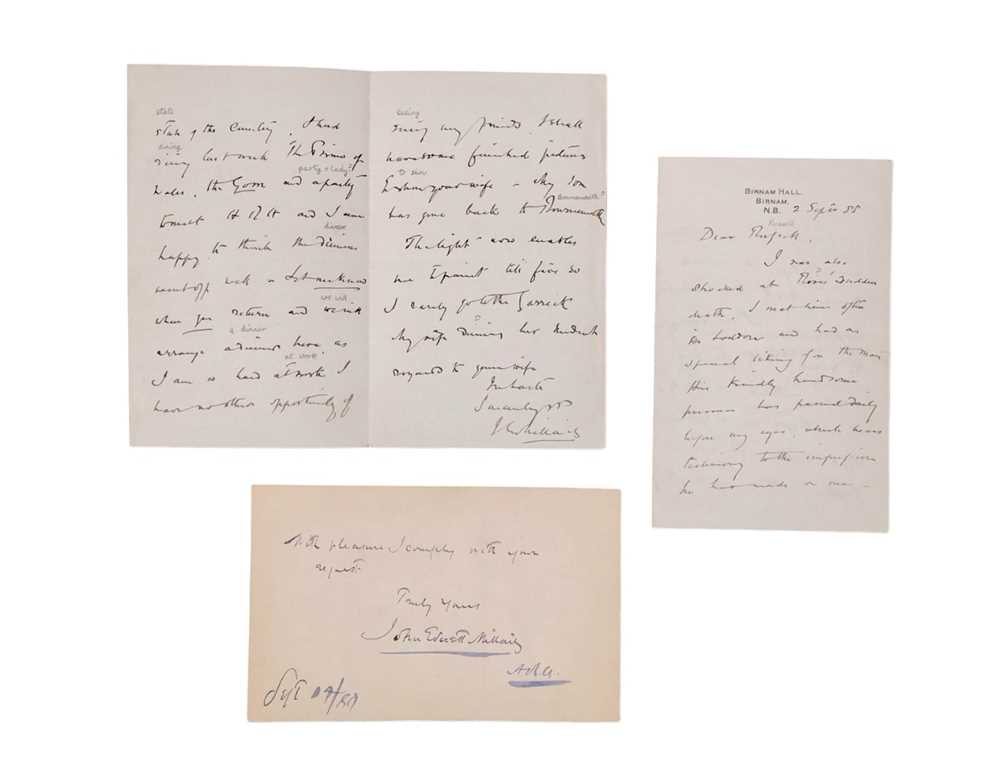 state
state of the Country. I had
dining
dining last week The Prince of
party + lady?
Wales, the Gosse and a party
to meet H R H and I am
dinner
happy to think the dinner
went off well - Let me know
we will
when you return and we will
a dinner
arrange a dinner here, as
at work
I am so hard at work I
have no other opportunity of
seeing
seeing my friends. I shall
have some finished pictures
to show
to show your wife - My son
Bournemouth?
has gone back to Bournemouth
The light now enables
me to paint till five so
I rarely go to the Garrick
?
My wife her kindest
regards to your wife
In haste
Sincerely yrs
J E Millais
BIRNAM HALL,
BIRNAM,
N.B.
2 Sepbr 88
Dear
I was also
?
shocked at sudden
death. I met him often
in London and had a
special liking for the man
His kindly handsome
presence has passed daily
before my eyes, which bears
testimony to the impression
he has made on me -
With pleasure I comply with your
request
Truly Yours
John Everett Millais
A.R.A.
Sept